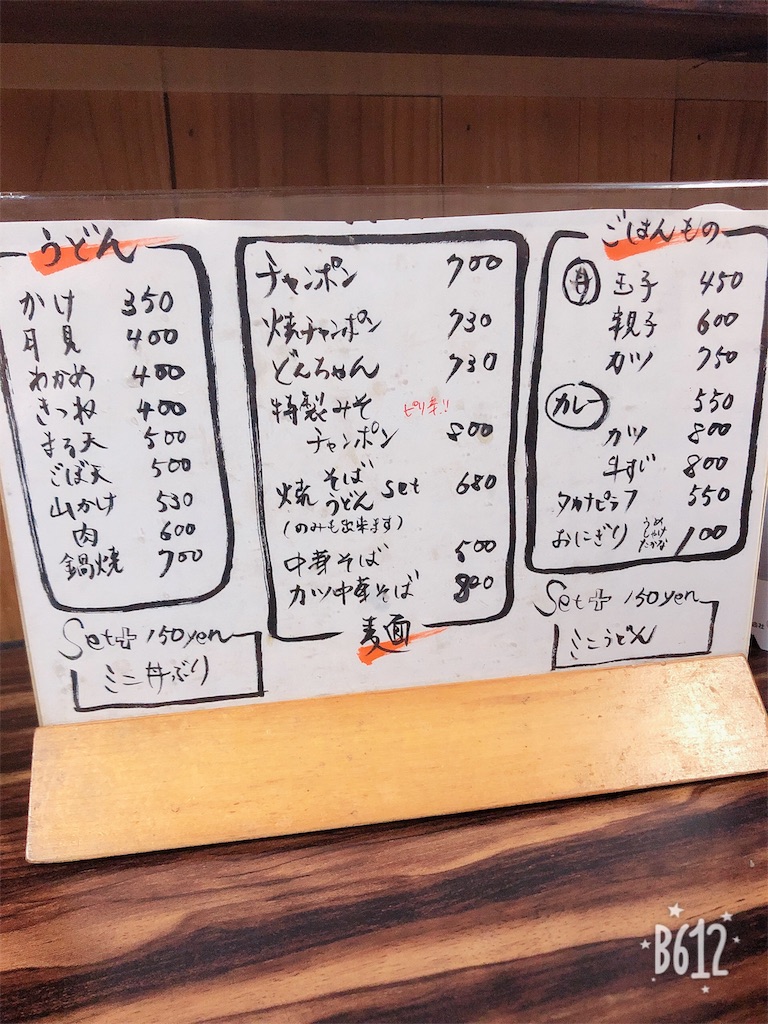 うどん
かけ 350
月見 400
わかめ 400
きつね 400
まる天 500
ごぼ天 500
山かけ 530
肉 600
鍋焼 700
Set+150yen
ミニ丼ぶり
チャンポン 700
焼チャンポン 730
どんちゃん 730
特製みそ ピリ辛!!
チャンポン 800
焼 そば うどん set 680
(のみも出来ます)
中華そば 500
カツ中華そば 800
麺
ごはんもの
丼 玉子 450
親子 600
カツ 750
カレー 550
カツ 800
牛すじ 800
タカナピラフ 550
おにぎり うめ しゃけ たかな 100
Set+150yen
ミニうどん
B612